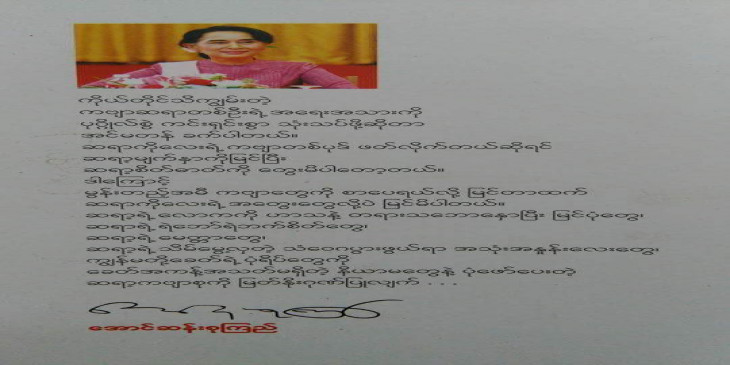 ကိုယ်တိုင်သိကျွမ်းတဲ့
ကဗျာဆရာတစ်ဦးရဲ့ အရေးအသားကို
ပုဂ္ဂိုလ်စွဲ ကင်းရှင်းစွာ သုံးသပ်ဖို့ဆိုတာ
အင်မတန် ခက်ပါတယ်။
ဆရာကိုလေးရဲ့ ကဗျာတစ်ပုဒ် ဖတ်လိုက်တယ်ဆိုရင်
ဆရာ့မျက်နှာကိုမြင်ပြီး
ဆရာ့စိတ်ဓာတ်ကို တွေးမိပါတော့တယ်။
ဒါကြောင့်
မွန်းတည့်အမီ ကဗျာတွေကို စာပေရယ်လို့ မြင်တာထက်
ဆရာကိုလေးရဲ့ အတွေးတွေလို့ပဲ မြင်မိပါတယ်။
ဆရာ့ရဲ့ လောကကို ဟာသနဲ့ တရားသဘောနှောပြီး မြင်ပုံတွေ၊
ဆရာ့ရဲ့ ရဲဘော်ရဲဘက်စိတ်တွေ၊
ဆရာ့ရဲ့ မေတ္တာတွေ၊
ဆရာ့ရဲ့ သိမ်မွေ့လှတဲ့ သံဝေဂပွားဖွယ်ရာ အသုံးအနှုန်းလေးတွေ၊
ကျွန်မတို့ခေတ်ရဲ့ ပုံရိပ်တွေကို
ခေတ်အကန့်အသတ်မရှိတဲ့ နိယာမတွေနဲ့ ပုံဖော်ပေးတဲ့
ဆရာ့ကဗျာစုကို မြတ်နိုးဂုဏ်ပြုလျက် . . .
အောင်ဆန်းစုကြည်